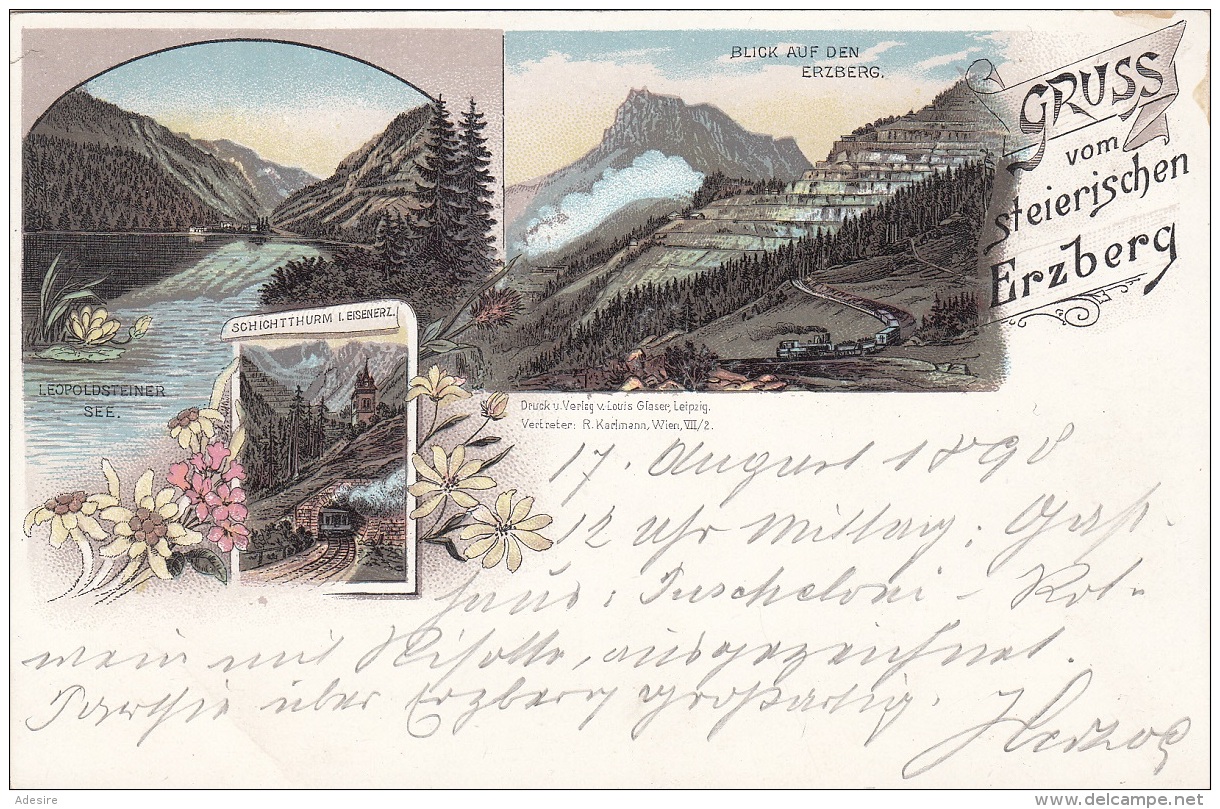 BLICK AUF DEN
ERZBERG.
GRUSS
vom
steierischen
Erzberg
SCHICHTTHURM I. EISENERZ.
LEOPOLDSTEINER
SEE.
Druck u. Verlag v. Louis Glaser, Leipzig.
Vertreter: R. Karlmann, Wien, VII/2.
17. August 1898
12 Uhr Mittag; Gast-
haus: - Rot-
wein mit Risotto, ausgezeichnet.
Parthie über Erzberg großartig.
Adesire
www.delcampe.net